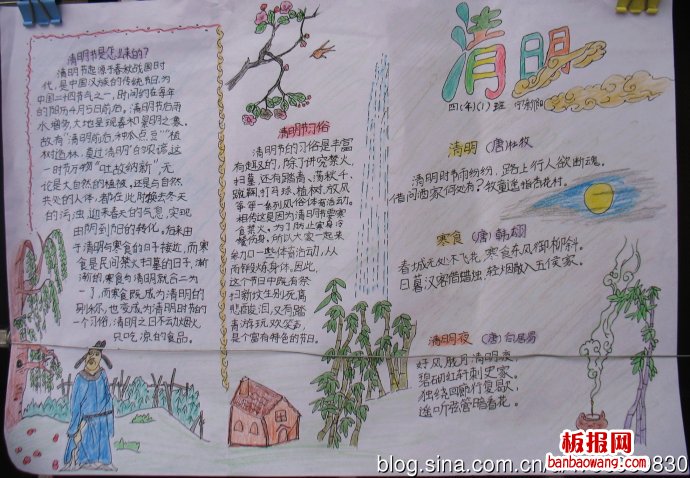 清明节是怎么来的?
清明节起源于春秋战国时
代,是中国汉族的传统节日,为
中国二十四节气之一,时间约在每年
的阳历4月5日前后。清明节后雨
水增多,大地呈现春和景明之象。
故有“清明前后,种瓜点豆”“植
树造林,莫过清明”的农谚,这
一时节万物“吐故纳新”,无
论是大自然的植被,还是与自然
共处的人体,都在此时换去冬天
的污浊,迎来春天的气息,实现
由阴到阳的转化。后来由
于清明与寒食的日子接近,而寒
食是民间禁火扫墓的日子,渐
渐的,寒食与清明就合二为
一了,而寒食既成为清明的
别称,也变成为清明时节的
一个习俗,清明之日不动烟火
只吃凉的食品。
清明节习俗
清明节的习俗是丰富
有趣的,除了讲究禁火、
扫墓,还有踏青、荡秋千、
蹴鞠、打马球、植树、放风
筝等一系列风俗体育活动。
相传这是因为清明节要寒
食禁火,为了防止寒食冷
餐伤身,所以大家一起来
参加一些体育活动,从
而锻炼身体。因此,
这个节日中既有祭
扫新坟生别死离
的悲酸泪,又有踏
青游玩欢笑声,
是个富有特色的节日。
清明
四(年)(1)班
清明 (唐)杜牧
清明时节雨纷纷,路上行人欲断魂。
借问酒家何处有?牧童遥指杏花村。
寒食 (唐)韩翃
春城无处不飞花,寒食东风御柳斜。
日暮汉宫传蜡烛,轻烟散入五侯家。
清明夜 (唐)白居易
好风胧月清明夜,
碧砌红轩刺史家。
独绕回廊行复歇,
遥听弦管暗看花。
板报网
banbaowang.com